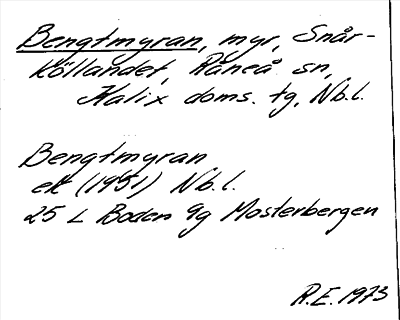 Bengtmyran, myr, Snår-
köllandet, Råneå sn,
Kalix doms. tg, Nb.l.
Bengtmyran
ek (1951) Nb.l.
25 L Boden 9g Mosterbergen
R.E. 1973